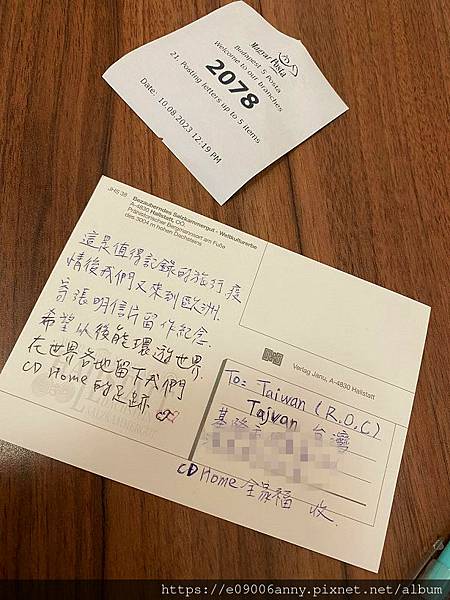 Magyar Posta
Budapest 5 Posta
Welcome to our branches
2078
21. Posting letters up to 5 items
Date: 10.08.2023 12:19 PM
JHS 38
Bezauberndes Salzkammergut - Weltkulturerbe
A-4830 Hallstatt, OÖ.
Prähistorischer Bergmannsort am Fuße
des 3004 m hohen Dachsteins
這是值得記錄的旅行疫
情後我們又來到歐洲.
寄張明信片留作紀念.
希望以後能環遊世界.
在世界各地留下我們
CD Home的足跡.
Verlag Janu, A-4830 Hallstatt
To: Taiwan (R.O.C)
Taiwan 台灣
基隆
CD Home 全家福 收.
https://e09006anny.pixnet.net/album